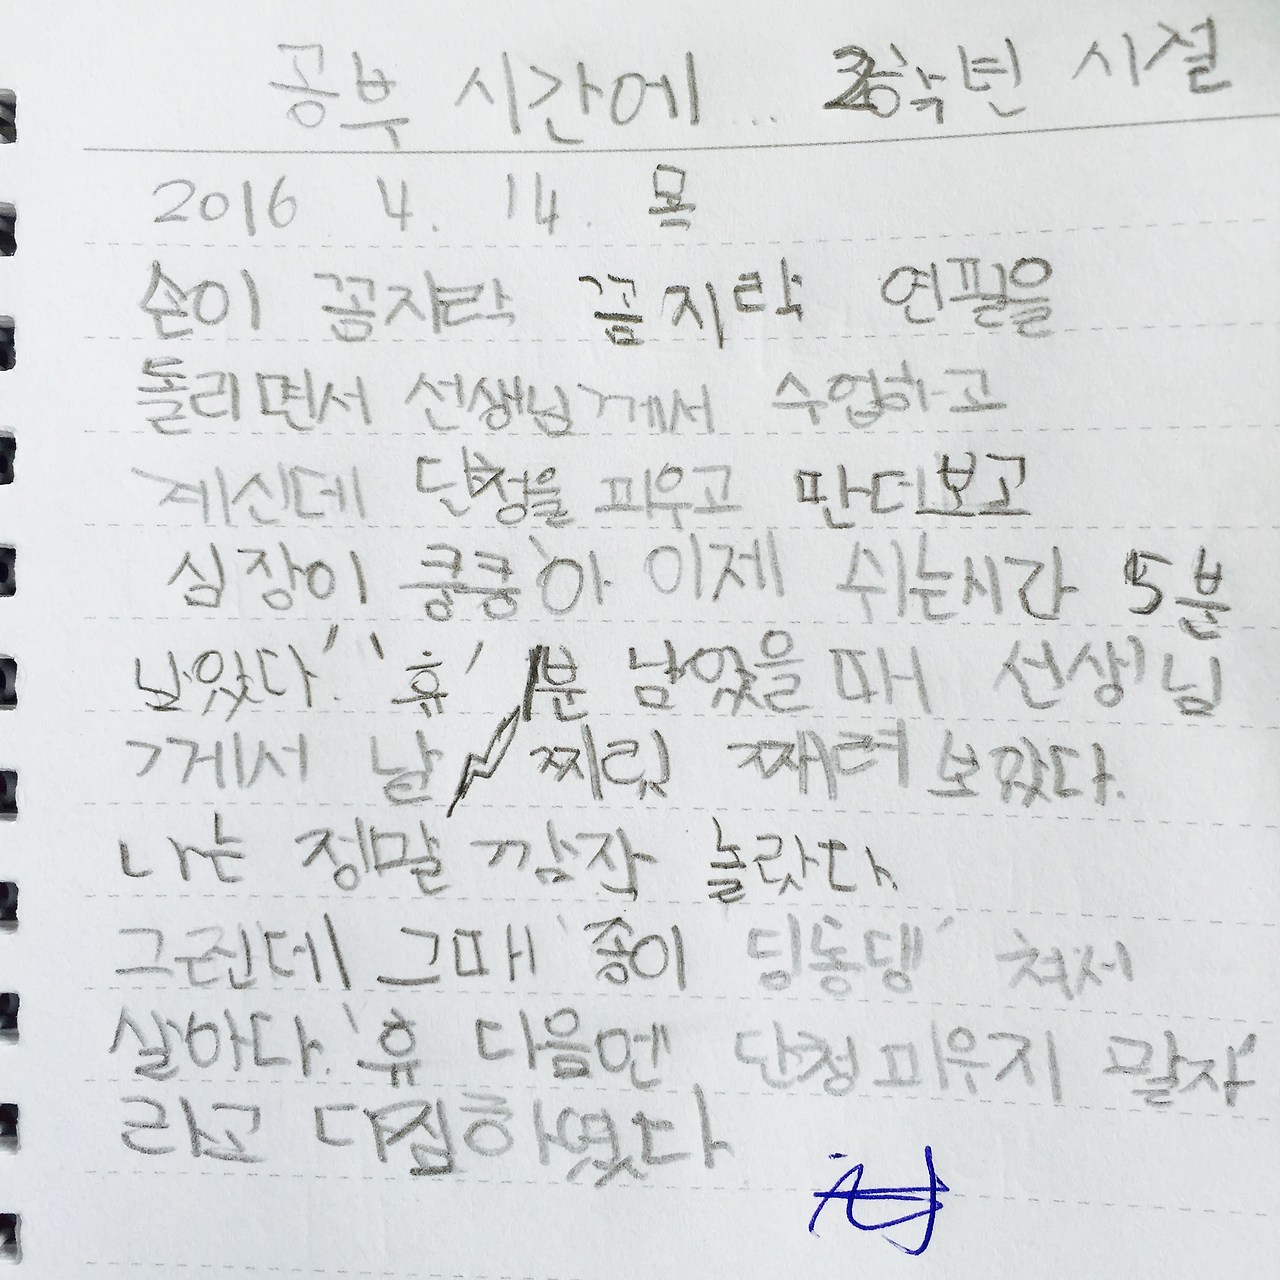 공부 시간에... 2학년 시절
2016 4. 14. 목
손이 꼼지락 꼼지락 연필을
돌리면서 선생님께서 수업하고
계신데 단청을 피우고 딴디보고
심장이 쿵쿵 '아 이제 쉬는시간 5분
남았다.' '휴' 1분 남았을 때 선생님
께서 날 찌릿 째려 보았다.
나는 정말 깜작 놀랐다.
그런데 그때 '종이 딩동댕' 쳐서
살아다. '휴 다음엔 단청피우지 말자'
라고 다짐하였다